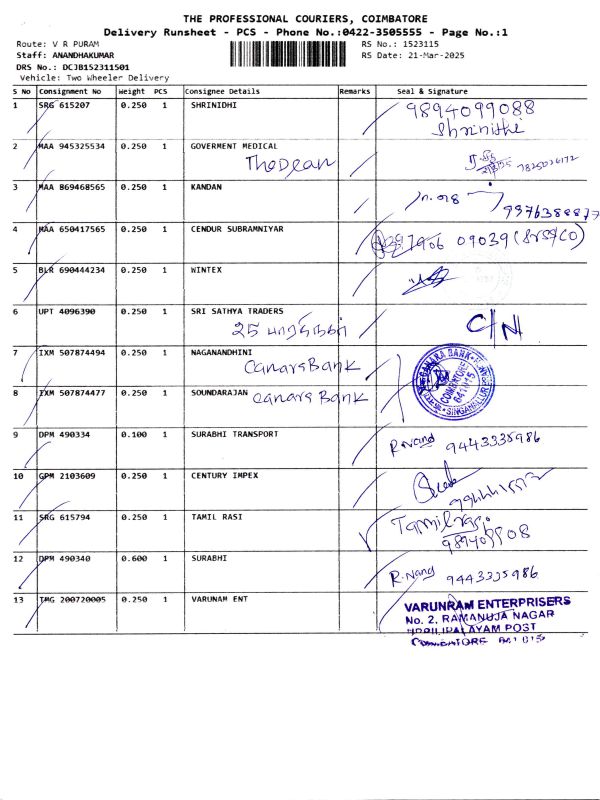 THE PROFESSIONAL COURIERS, COIMBATORE
Delivery Runsheet - PCS - Phone No.:0422-3505555 - Page No.:1
Route: V R PURAM RS No.: 1523115
Staff: ANANDHAKUMAR RS Date: 21-Mar-2025
DRS No.: DCJB152311501
Vehicle: Two Wheeler Delivery
S No Consignment No Weight PCS Consignee Details Remarks Seal & Signature
1 SRG 615207 0.250 1 SHRINIDHI 9894099088
Shrinithi
2 MAA 945325534 0.250 1 GOVERMENT MEDICAL
TheDean
3 MAA 869468565 0.250 1 KANDAN
9376388877
4 MAA 650417565 0.250 1 CENDUR SUBRAMNIYAR 09039
5 BLR 690444234 0.250 1 WINTEX
6 UPT 4096390 0.250 1 SRI SATHYA TRADERS C/N
25
7 IXM 507874494 0.250 1 NAGANANDHINI
Canara Bank
CANARA BANK
COIMBATORE
641015
SINGANALLUR
8 IXM 507874477 0.250 1 SOUNDARAJAN
Canara Bank
9 DPM 490334 0.100 1 SURABHI TRANSPORT R.Nand 9443335986
10 GPM 2103609 0.250 1 CENTURY IMPEX
11 SRG 615794 0.250 1 TAMIL RASI Tamilrasi
12 DPM 490340 0.600 1 SURABHI R.Nand 9443335986
13 TMG 200720005 0.250 1 VARUNAM ENT
VARUNRAM ENTERPRISERS
No. 2, RAMANUJA NAGAR
UPPILIPALAYAM POST
COIMBATORE 641 015